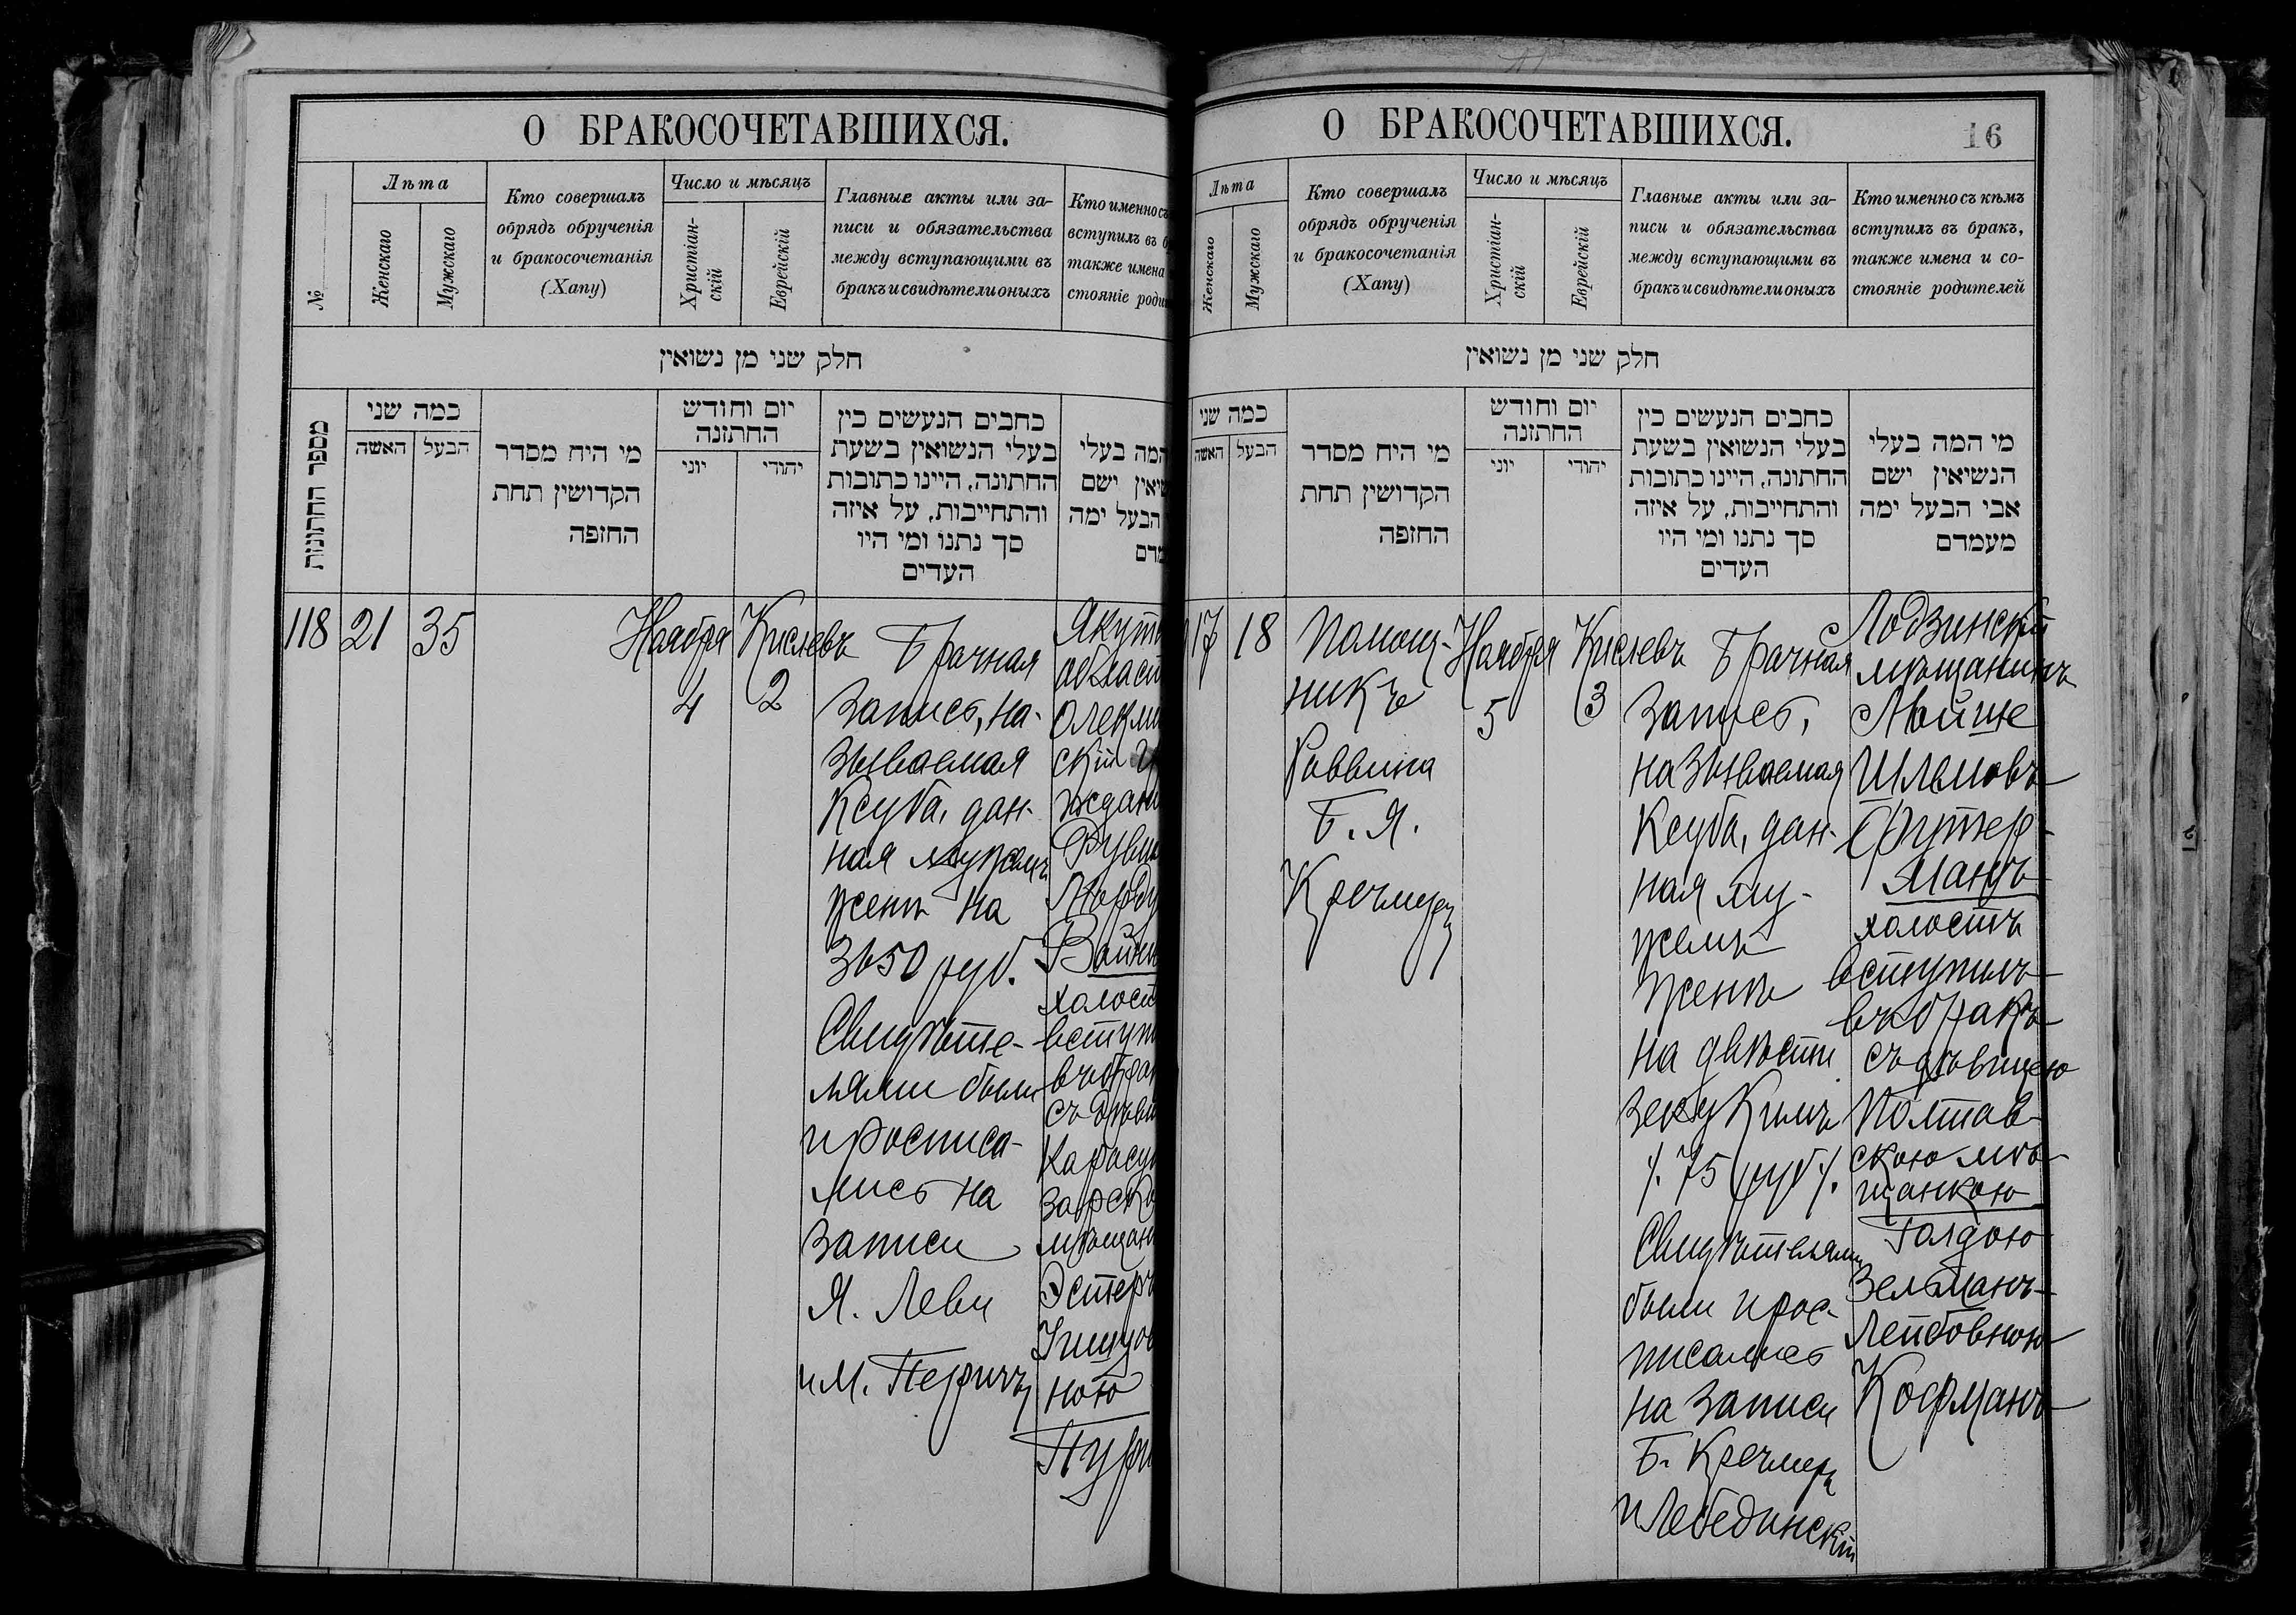 О БРАКОСОЧЕТАВШИХСЯ.
№
Лѣта
Женскаго
Мужскаго
Кто совершалъ
обрядъ обрученія
и бракосочетанія
(Хапу)
Число и мѣсяцъ
Христіан-
скій
Еврейскій
Главные акты или за-
писи и обязательства
между вступающими въ
бракъ и свидѣтели оныхъ
Кто именно съ
вступилъ въ б
также имена
стояніе роди
חלק שני מן נשואין
מספר החתונות
כמה שני
האשה
הבעל
מי היח מסדר
הקדושין תחת
החופה
יום וחודש
החתונה
יוני
יהודי
כתבים הנעשים בין
בעלי הנשואין בשעת
החתונה, היינו כתובות
והתחייבות, על איזה
סך נתנו ומי היו
העדים
המה בעלי
שיאין ישם
הבעל ימה
מדם
118
21
35
Ноября
4
Кислевъ
2
Брачная
запись, на-
зываемая
Ксуба, дан-
ная мужемъ
женѣ на
3650 руб.
Свидѣте-
лями были
и росписа-
лись на
записи
Я. Леви
и М. Перичъ
Якутс
област
Олекми
скій г
ждани
Рувим
Мордух
Вайн
холост
вступ
въ бра
съ дѣви
Карасу
зарско
мѣщан
Эстеръ
ною
Тури
О БРАКОСОЧЕТАВШИХСЯ.
16
Лѣта
Женскаго
Мужскаго
Кто совершалъ
обрядъ обрученія
и бракосочетанія
(Хапу)
Число и мѣсяцъ
Христіан-
скій
Еврейскій
Главные акты или за-
писи и обязательства
между вступающими въ
бракъ и свидѣтели оныхъ
Кто именно съ кѣмъ
вступилъ въ бракъ,
также имена и со-
стояніе родителей
חלק שני מן נשואין
כמה שני
האשה
הבעל
מי היח מסדר
הקדושין תחת
החופה
יום וחודש
החתונה
יוני
יהודי
כתבים הנעשים בין
בעלי הנשואין בשעת
החתונה, היינו כתובות
והתחייבות, על איזה
סך נתנו ומי היו
העדים
מי המה בעלי
הנשיאין ישם
אבי הבעל ימה
מעמדם
17
18
Помощ-
никъ
Раввина
Б. Я.
Кречмеръ
Ноября
5
Кислевъ
3
Брачная
запись,
называемая
Ксуба, дан-
ная му-
жемъ
женѣ
на двѣсти
зекукимъ
/. 75 руб /.
Свидѣтелями
были и рос-
писались
на записи
Б. Кречмеръ
и Лебединскій
Лодзинскій
мѣщанинъ
Мойше
Шлемовъ
Футер-
манъ
холостъ
вступилъ
въ бракъ
съ дѣвицею
Полтав-
скою мѣ-
щанкою
Голдою
Зельманъ-
Лейбовною
Кофманъ